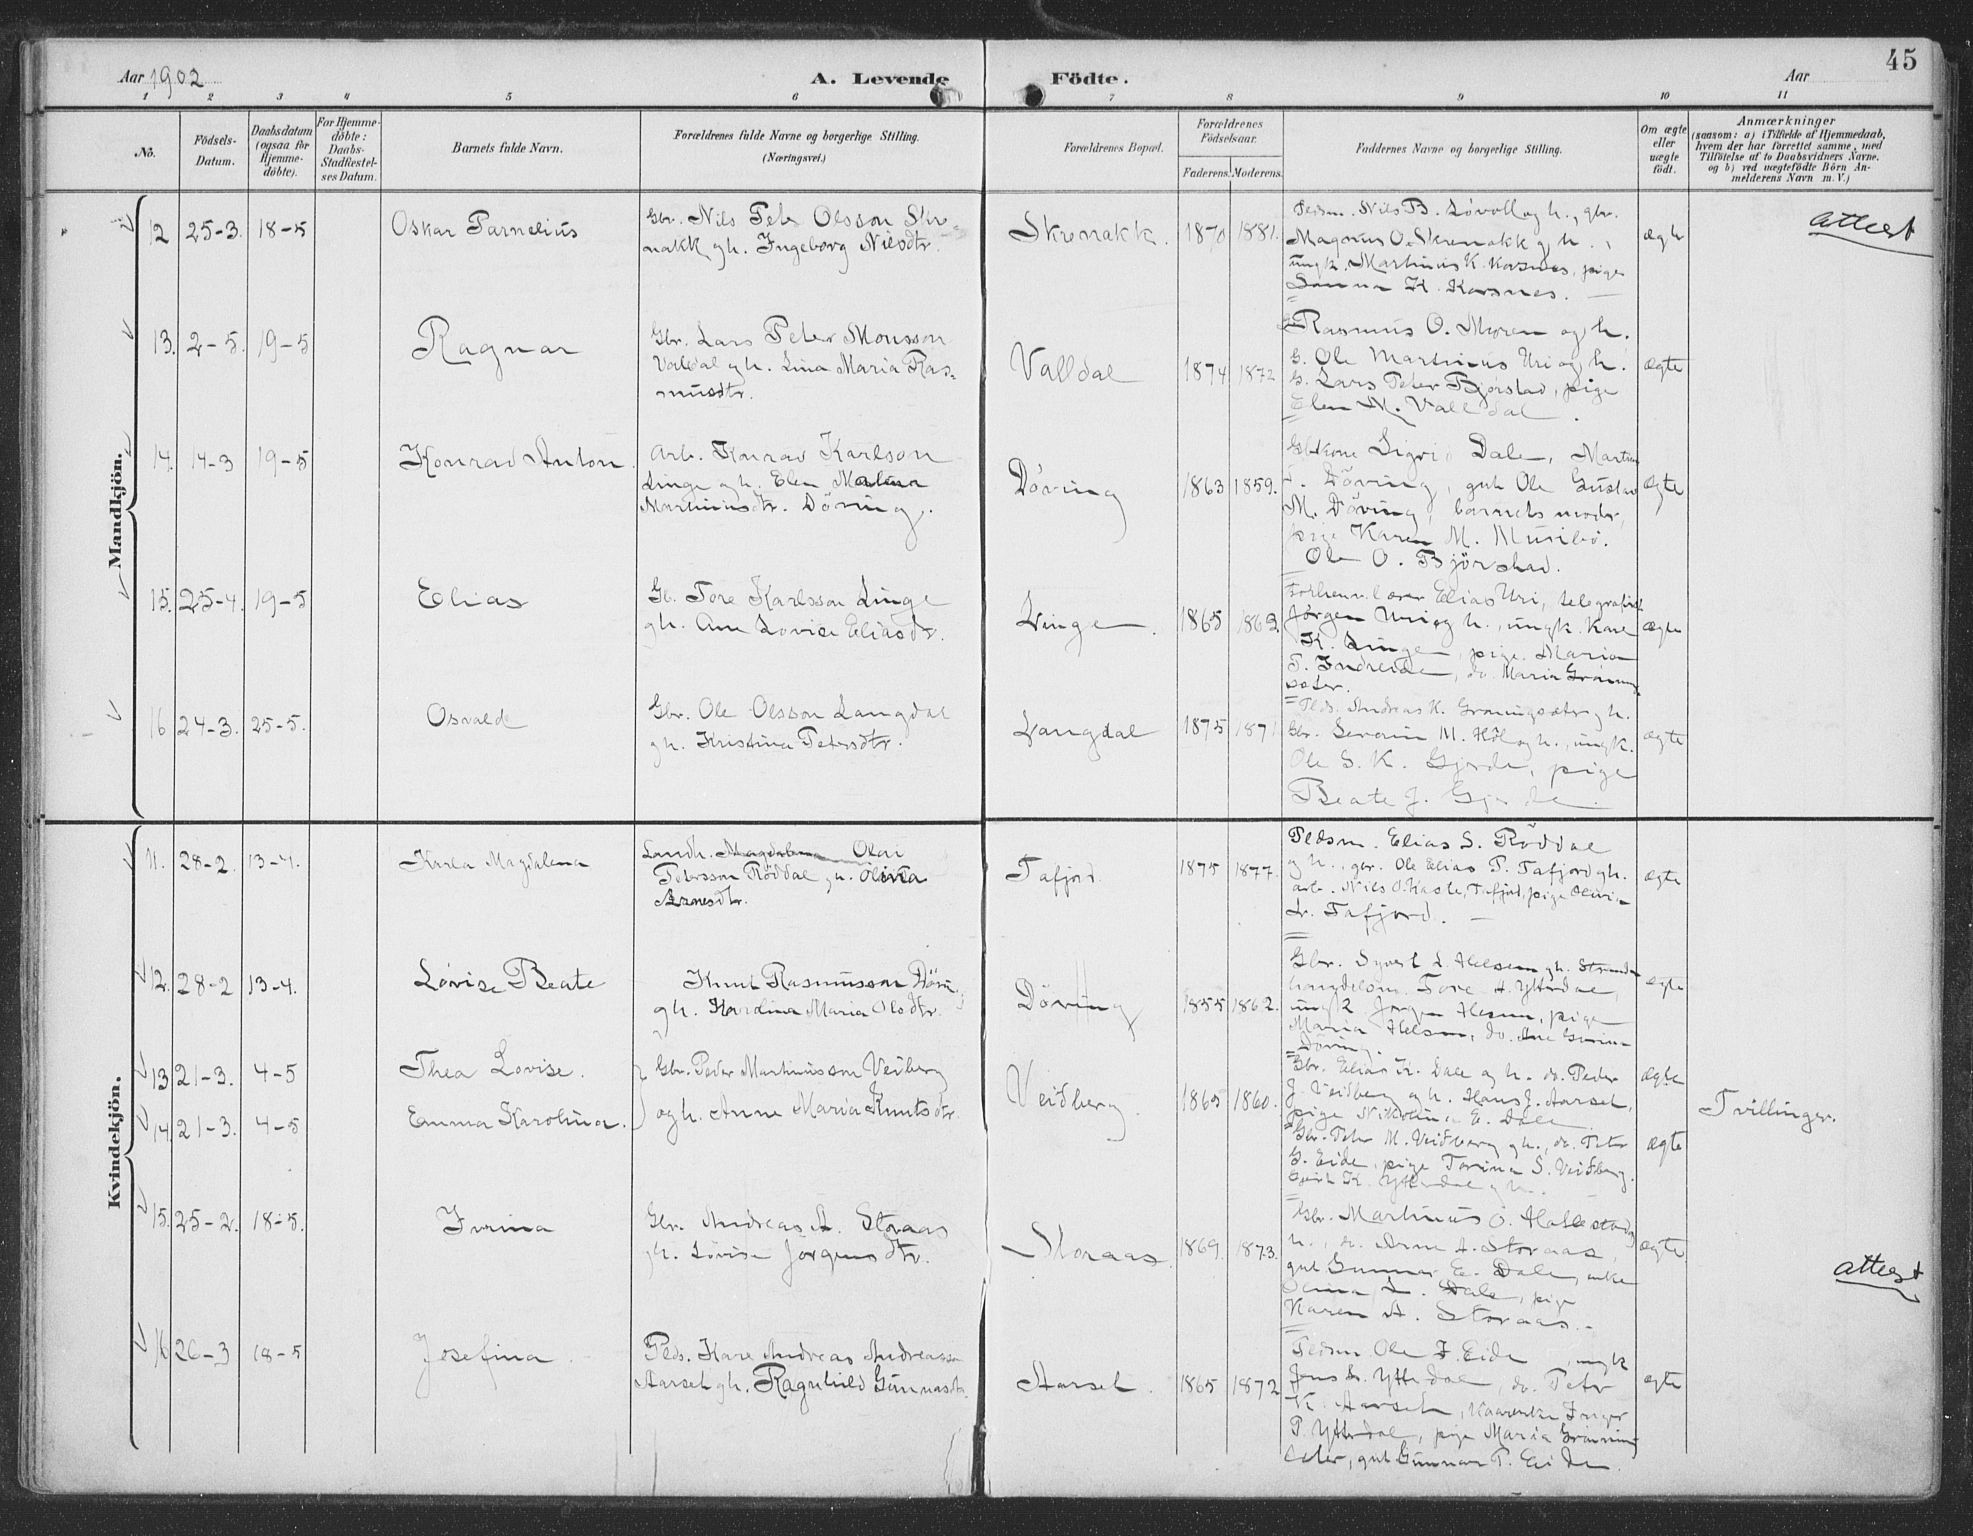 45
Aar 1902
A. Levende Födte.
Aar
1 2 3 4 5 6 7 8 9 10 11
No.
Födsels-Datum.
Daabsdatum (ogsaa for Hjemme-döbte).
For Hjemme-döbte: Daabs-Stadfæstel-ses Datum.
Barnets fulde Navn.
Forældrenes fulde Navne og borgerlige Stilling.
(Næringsvei.)
Forældrenes Bopæl.
Forældrenes Födselsaar.
Faderens. Moderens.
Faddernes Navne og borgerlige Stilling.
Om ægte eller uægte födt.
Anmærkninger
(saasom: a) i Tilfælde af Hjemmedaab, hvem der har forrettet samme, med Tilföielse af to Daabsvidners Navne, og b) ved uægtefödte Börn An-melderens Navn m. V.)
Mandkjön.
12 25-3. 18-5 Oskar Parnelius
Gbr. Nils Peter Olsson Skre-
nakk gh. Ingeborg Nilsdtr.
Skrenakk. 1870 1881.
Pldsm. Nils B. Lövoll og h., gbr.
Magnus O. Skrenakk g h.,
ungk. Martinus K. Korsnes, pige
Sanna K. Korsnes.
ægte
attest
13. 2-5. 19-5 Ragnar
Gbr. Lars Peter Monsson
Valldal gh. Lina Maria Ras-
musdtr.
Valldal 1874 1872
Rasmus O. Muren og h.
G. Ole Martinus Uri og h.
G. Lars Peter Bjørstad, pige
Elen M. Valldal.
ægte
14. 14-3 19-5 Konrad Anton.
Arb. Konrad Karlson
Linge gh. Elen Malena
Martinusdtr. Döving.
Döving 1863 1859.
Gbkone Sigrid Dale, Martin
Döving, gut Ole Gustav
M. Döving, barnets moder,
pige Karen M. Muribö.
Ole O. Bjørstad.
ægte
15. 25-4. 19-5 Elias
G. Tore Karlsson Linge
gh. Ane Lovise Eliasdtr.
Linge. 1865 1862
Forhenv. lærer Elias Uri, telegrafist
Jørgen Uri og h., ungk. Karl
K. Linge, pige Maria
P. Indreide, do. Maria Grøning-
sæter.
ægte
16 24-3. 25-5. Osvald
Gbr. Ole Olsson Langdal
gh. Kristina Petersdtr.
Langdal 1875 1871
Plds. Andreas K. Grøningsæter gh.
Gbr. Severin M. Höl og h., ungk.
Ole S. K. Gjerde, pige
Beate J. Gjerde.
ægte
Kvindekjön.
11. 28-2. 13-4. Karla Magdalena
Landh. Olai
Petersson Röddal gh. Olivia
Arnesdtr.
Tafjord. 1875 1877.
Pldsm. Elias S. Röddal
g h., gbr. Ole Elias P. Tafjord gh.
arb. Nils O. Kaste, Tafjord, pige Olivi-
Tafjord.
ægte
12. 28-2 13-4. Lovise Beate
Knut Rasmusson Döving
gh. Kardina Maria Olsdtr.
Döving 1855 1862.
Gbr. Syvert L. Alesen gh. Strand-
handelsm. Tore A. Ytterdal,
ungk. Jørgen Alesen, pige
Maria Alesen, do. Ane
Döving.
ægte
13 21-3. 4-5 Thea Lovise.
Gbr. Peder Martinusson Veiberg
og h. Anne Maria Knutsdtr.
Veidberg. 1865 1860.
Gbr. Elias K. Dale og h. do. Peder
J. Veidberg g h. Hans J. Aarset,
pige Nikolina E. Dale.
ægte
Tvillinger.
14. 21-3. 4-5 Emma Karolina.
Gbr. Peter M. Veidberg g h., do. Peter
G. Eide, pige Torina S. Veidberg.
K. Ytterdal g h.
ægte
15. 25-2. 18-5. Ivrina
Gbr. Andreas A. Storaas
gh. Lovise Jørgensdtr.
Storaas 1869. 1873.
Gbr. Martinus O. Hallestad g
h., do. Arne A. Storaas,
gut Gunnar E. Dale, enke
Olina L. Dale, pige
Karen A. Storaas.
ægte
attest
16 26-3 18-5 Josefina.
Plds. Karl Andreas Andreasson
Aarset gh. Ragnhild Gunnardtr.
Aarset. 1865 1872
Pldsm. Ole J. Eide, ungk.
Jens L. Ytterdal, do. Peter
K. Aarset, Inger
P. Ytterdal, pige Maria Grøning
sæter, gut Gunnar P. Eide.
ægte